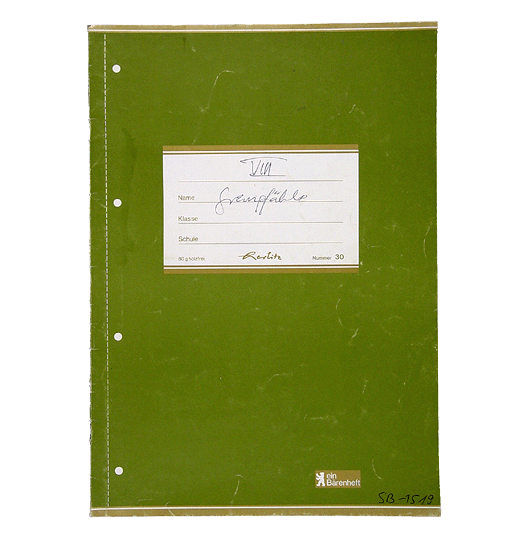 VIII
Name Grenzpfähle
Klasse
Schule
80 g holzfrei Herlitz Nummer 30
ein
Bärenheft
SB-1519